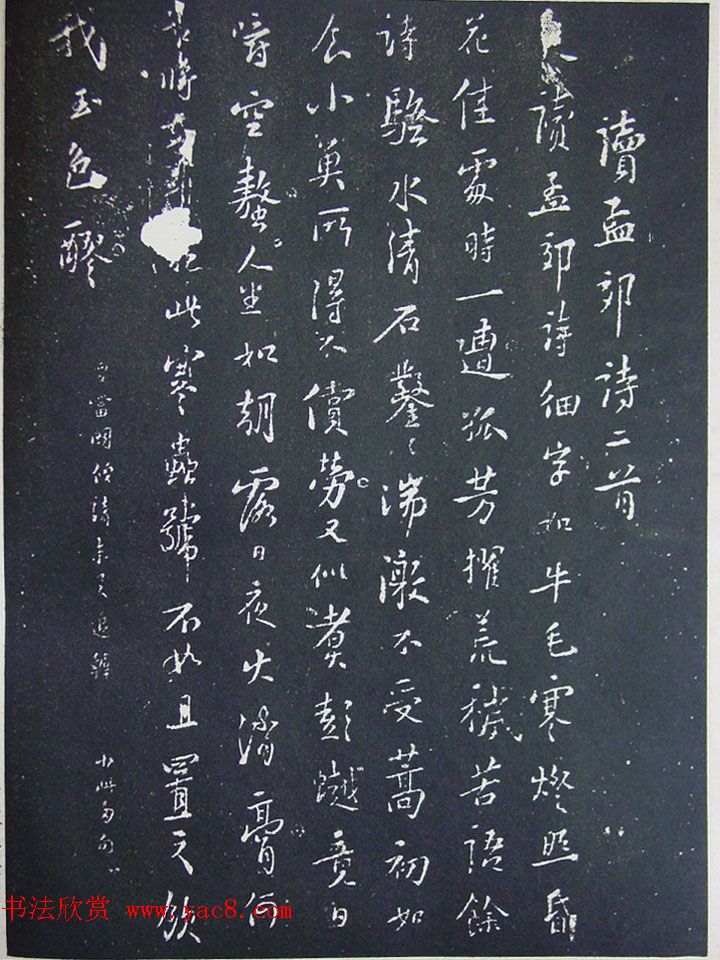 讀孟郊詩二首
讀孟郊詩細字如牛毛寒燈照昏
花佳處時一遭孤芳擢荒穢苦語餘
詩騷水清石鑿〻湍激不受蒿初如
食小魚所得不償勞又似煮彭竟日
嚼空螯人生如朝露日夜火消膏何
苦將此寒蟲號不如且置之飲
我玉色醪
书法欣赏 www.yac8.com